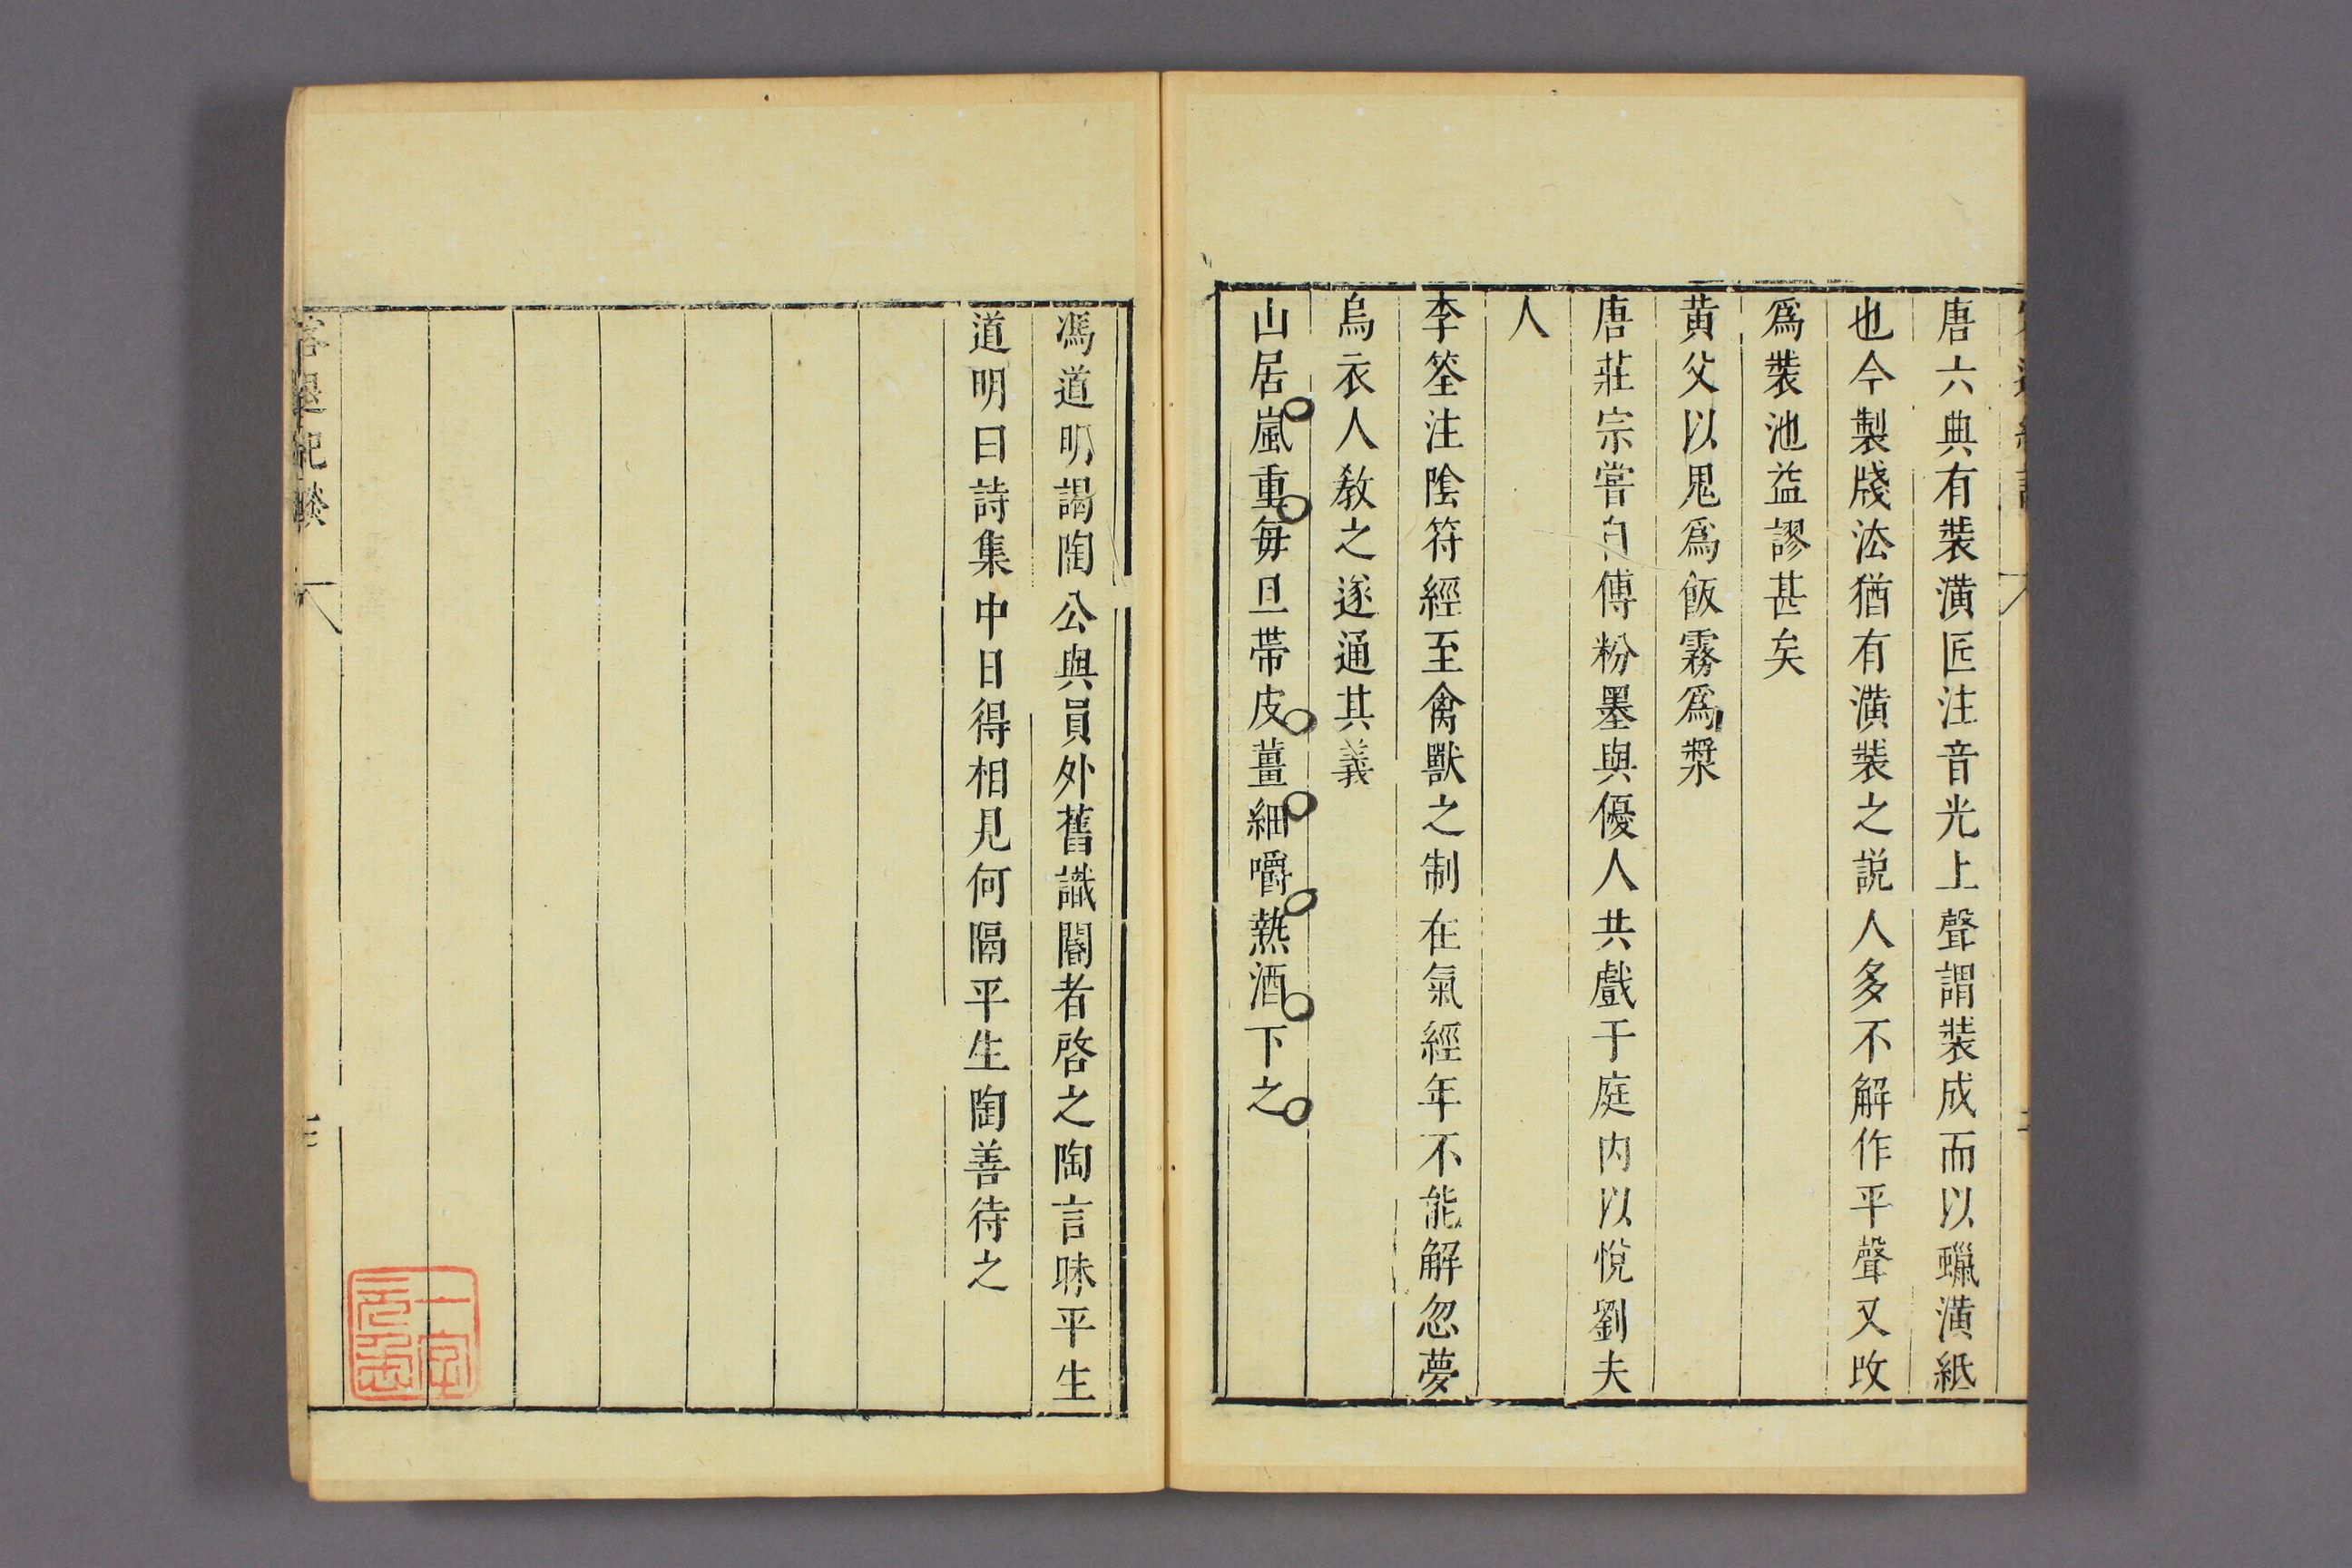 唐六典有裝潢匠注音光上聲謂裝成而以蠟潢紙
也今製牋法猶有潢裝之說人多不解作平聲又改
爲裝池益謬甚矣
黃父以鬼爲飯霧爲漿
唐莊宗嘗自傅粉墨與優人共戲于庭內以悅劉夫
人
李筌注陰符經至禽獸之制在氣經年不能解忽夢
烏衣人敎之遂通其義
山居嵐重每旦帶皮薑細嚼熱酒下之
馮道明謁陶公與員外舊識閽者啓之陶言昧平生
道明曰詩集中日得相見何隔平生陶善待之